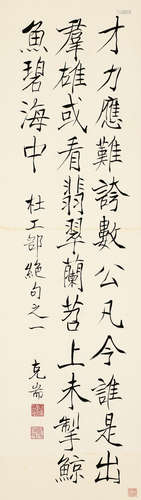 才力應難誇數公凡今誰是出
羣雄或看翡翠蘭苕上未掣鯨
魚碧海中 杜工部絕句之一
克耑